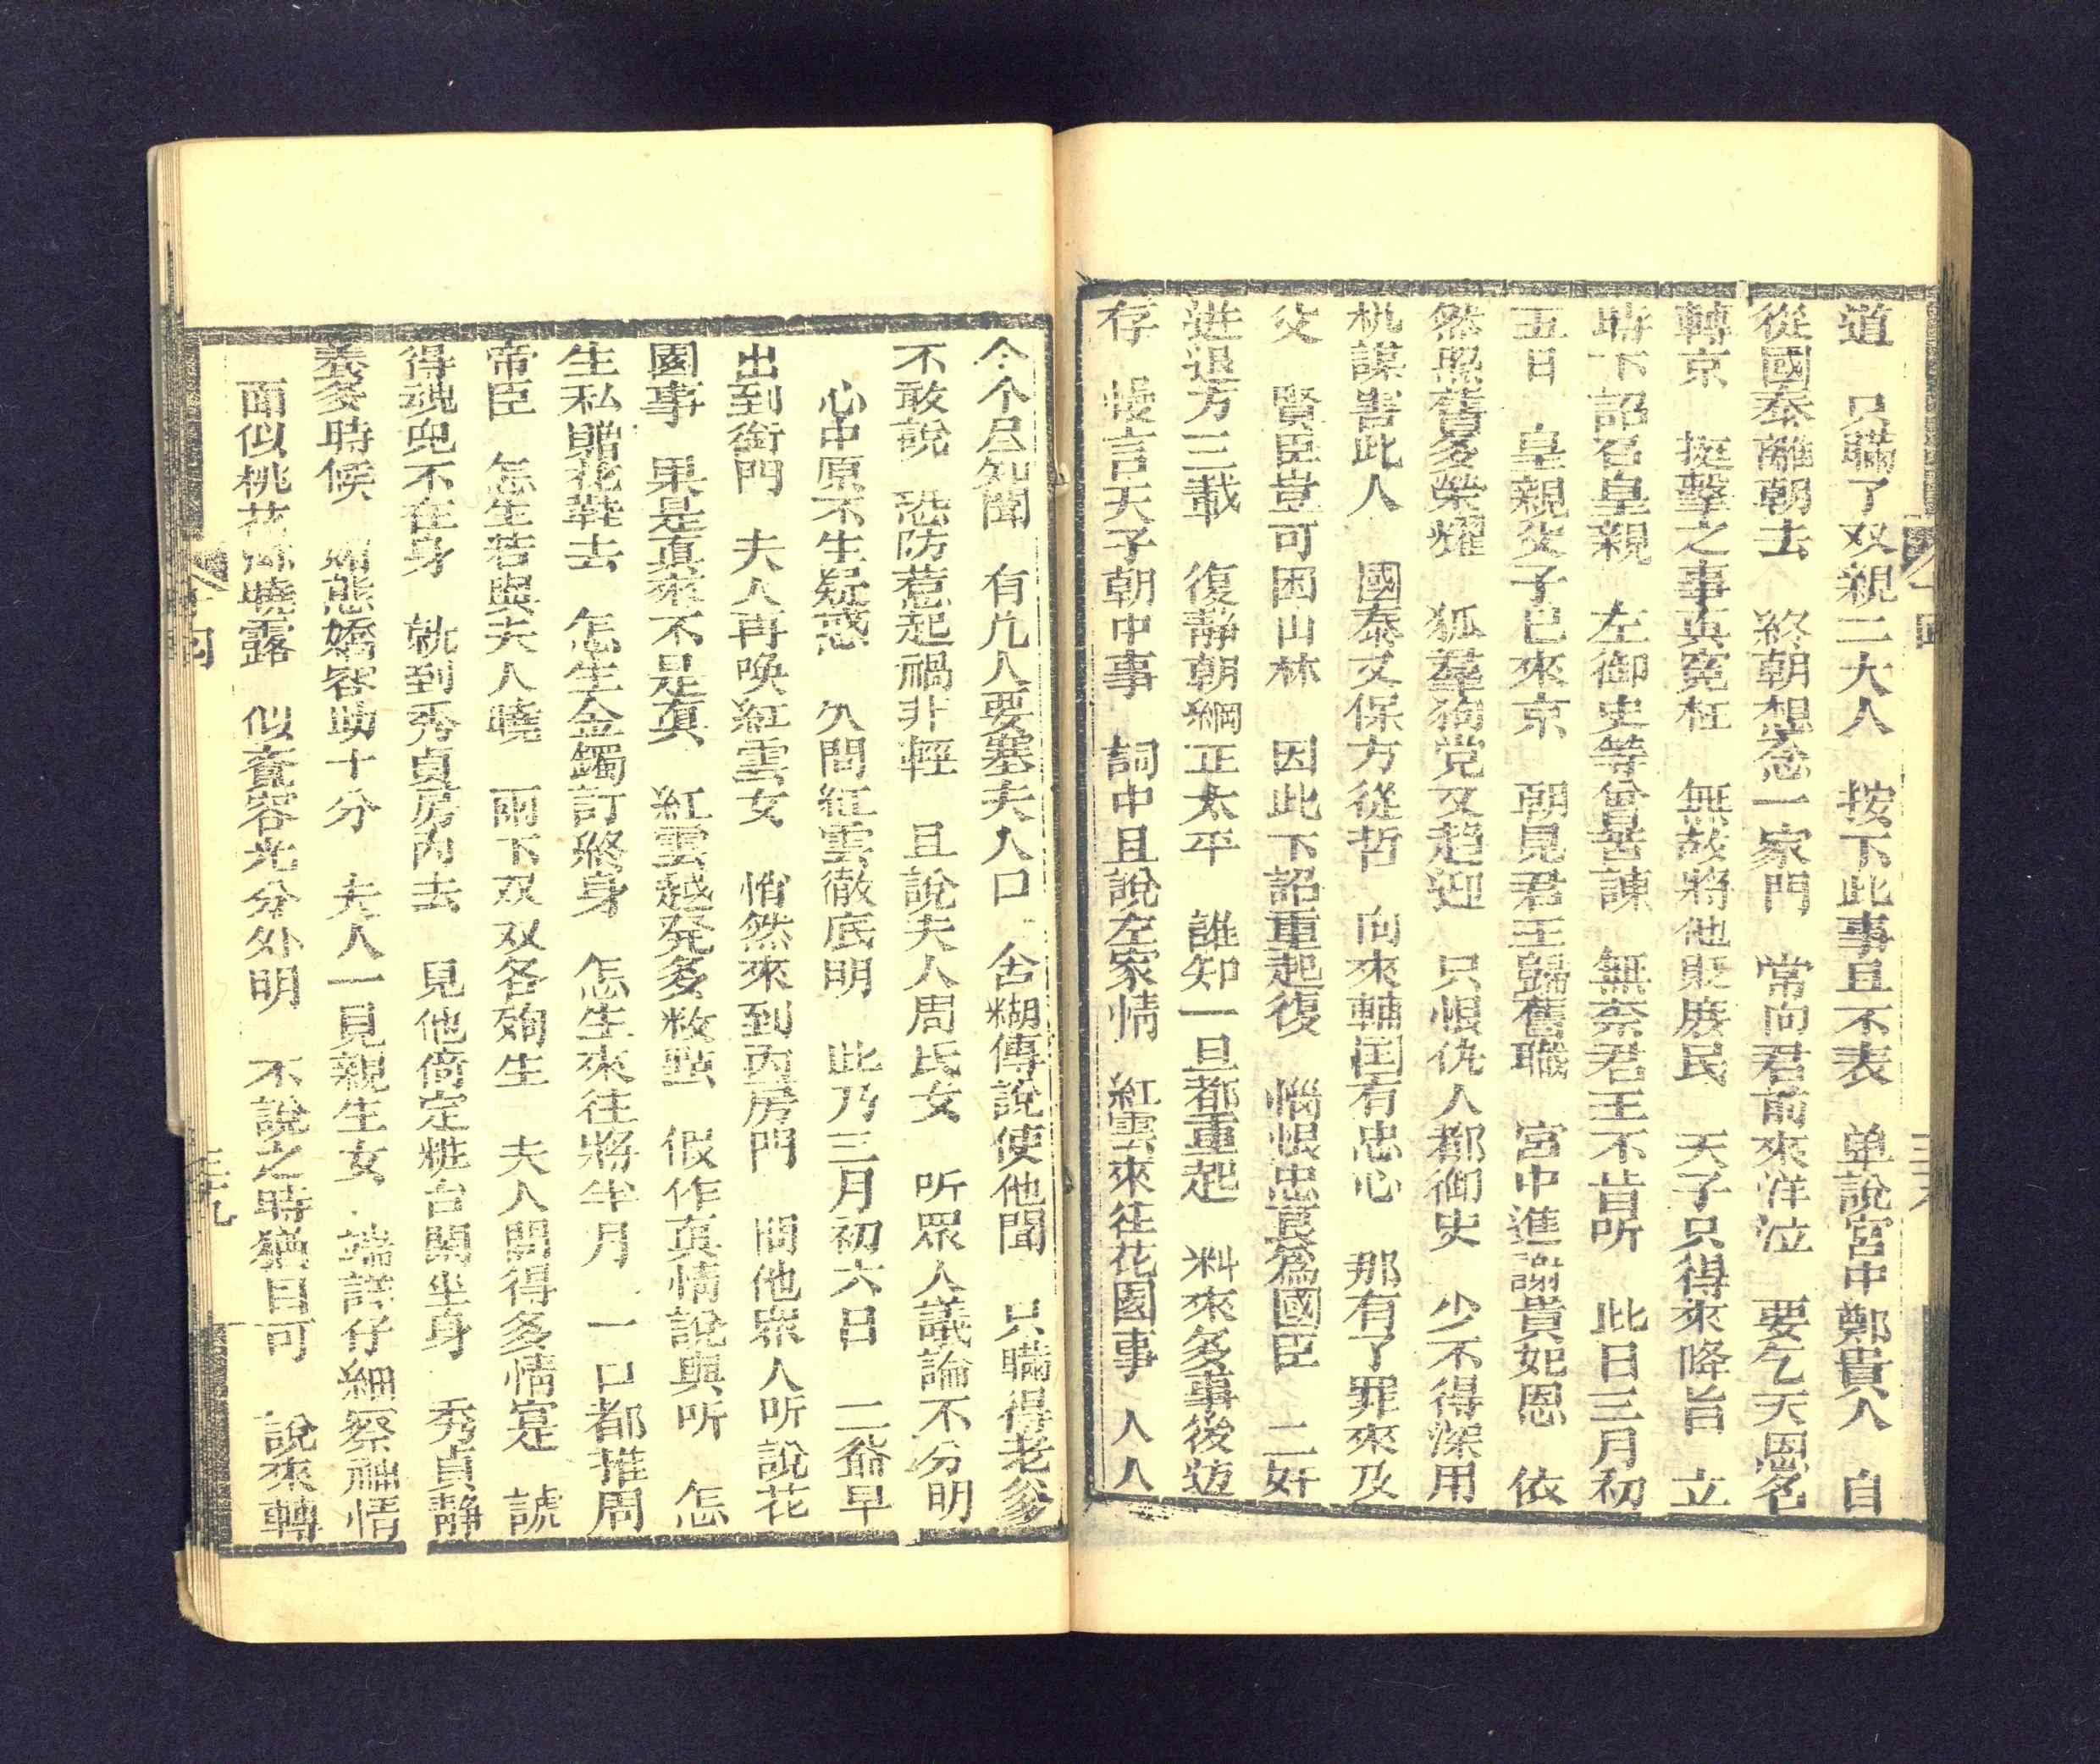 道　只瞞了双親二大人　按下此事且不表　单說宮中鄭貴人　自
從國泰離朝去　終朝想念一家門　常向君前來洋泣　要乞天恩名
轉京　挺擊之事真冤枉　無故將他貶庶民　天子只得來降旨　立
時下詔召皇親　左御史等曾苦諫　無奈君王不肯听　此日三月初
五日　皇親父子已來京　朝見君王歸舊職　宮中進謝貴妃恩　依
然照舊多榮耀　狐羣狗党又趋迎　只恨仇人都御史　少不得深用
机謀害此人　國泰又保方從哲　向來輔国有忠心　那有了罪來及
父　賢臣豈可困山林　因此下詔重起復　惱恨忠良為國臣　二奸
进退方三載　復静朝綱正太平　誰知一旦都重起　料來多事後妨
存　慢言天子朝中事　詞中且說左家情　紅雲來往花園事　人人
个个尽知聞　有几人要塞夫人口　含糊傳說使他聞　只瞞得老爹
不敢說　恐防惹起禍非輕　且說夫人周氏女　听眾人議論不分明
心中原不生疑惑　久間紅雲徹底明　此乃三月初六日　二爺早
出到衙門　夫人再唤紅雲女　悄然來到内房門　問他眾人听說花
園事　果是真來不是真　紅雲越発多敉點　假作真情說與听　怎
生私贈花鞋去　怎生金鐲訂終身　怎生來往將半月　一口都推周
帝臣　怎生若與夫人曉　兩下双双各殉生　夫人聞得多情寔　諕
得魂兜不在身　就到秀貞房內去　見他倚定粧台閑坐身　秀貞静
養多時候　媚態嬌容助十分　夫人一見親生女　端詳仔細察神情
面似桃花　曉露　似覺容光分外明　不說之時猶自可　說來轉